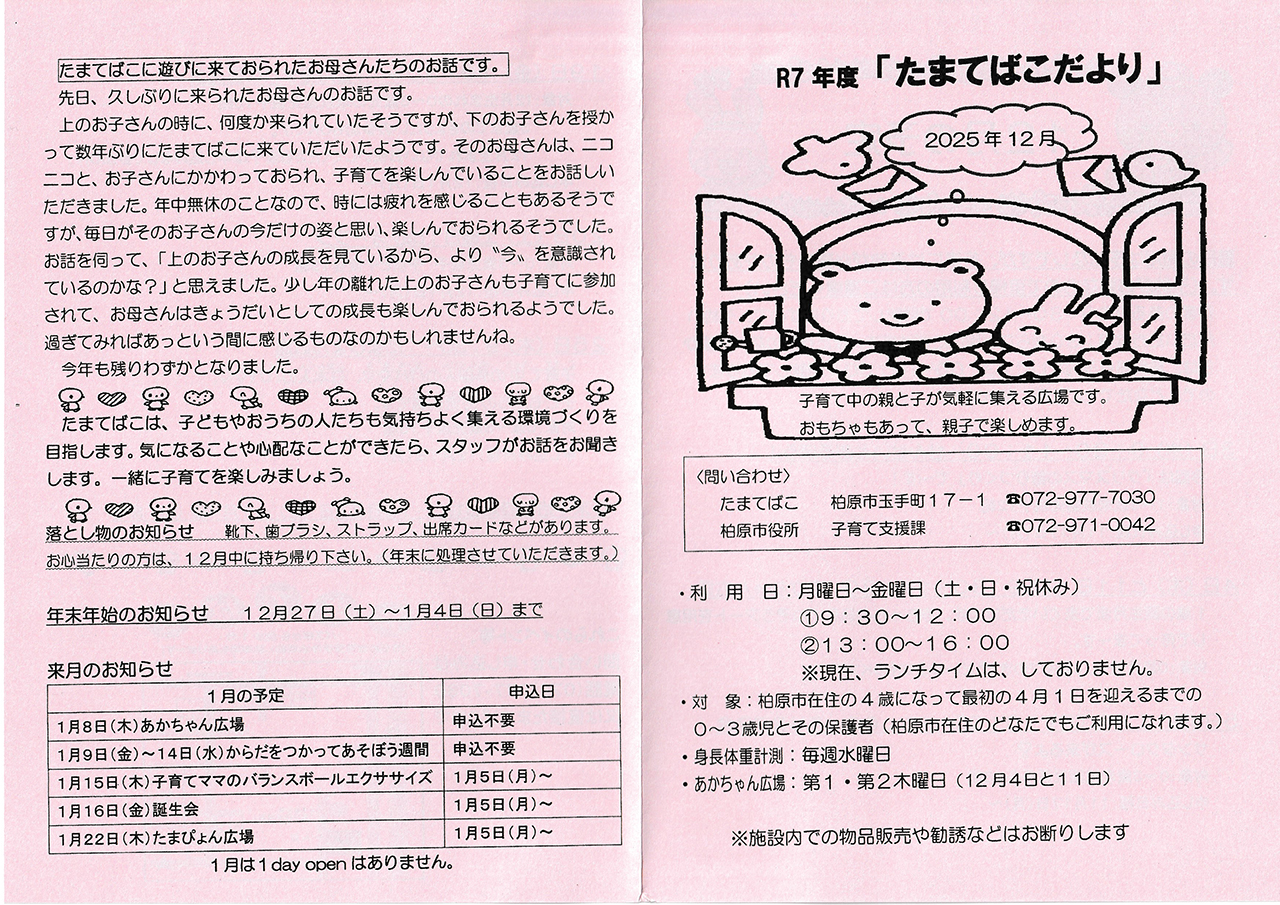 たまてばこに遊びに来ておられたお母さんたちのお話です。
先日、久しぶりに来られたお母さんのお話です。
上のお子さんの時に、何度か来られていたそうですが、下のお子さんを授か
って数年ぶりにたまてばこに来ていただいたようです。そのお母さんは、ニコ
ニコと、お子さんにかかわっておられ、子育てを楽しんでいることをお話しい
ただきました。年中無休のことなので、時には疲れを感じることもあるそうで
すが、毎日がそのお子さんの今だけの姿と思い、楽しんでおられるそうでした。
お話を伺って、「上のお子さんの成長を見ているから、より〝今〟を意識され
ているのかな?」と思えました。少し年の離れた上のお子さんも子育てに参加
されて、お母さんはきょうだいとしての成長も楽しんでおられるようでした。
過ぎてみればあっという間に感じるものなのかもしれませんね。
今年も残りわずかとなりました。
たまてばこは、子どもやおうちの人たちも気持ちよく集える環境づくりを
目指します。気になることや心配なことができたら、スタッフがお話をお聞き
します。一緒に子育てを楽しみましょう。
落とし物のお知らせ 靴下、歯ブラシ、ストラップ、出席カードなどがあります。
お心当たりの方は、12月中に持ち帰り下さい。(年末に処理させていただきます。)
年末年始のお知らせ 12月27日(土)～1月4日(日)まで
来月のお知らせ
1月の予定 申込日
1月8日(木)あかちゃん広場 申込不要
1月9日(金)～14日(水)からだをつかってあそぼう週間 申込不要
1月15日(木)子育てママのバランスボールエクササイズ 1月5日(月)～
1月16日(金)誕生会 1月5日(月)～
1月22日(木)たまぴょん広場 1月5日(月)～
1月は1day openはありません。
R7年度「たまてばこだより」
2025年12月
子育て中の親と子が気軽に集える広場です。
おもちゃもあって、親子で楽しめます。
〈問い合わせ〉
たまてばこ 柏原市玉手町17－1 ☎072-977-7030
柏原市役所 子育て支援課 ☎072-971-0042
・利 用 日：月曜日～金曜日(土・日・祝休み)
①9：30～12：00
②13：00～16：00
※現在、ランチタイムは、しておりません。
・対 象：柏原市在住の4歳になって最初の4月1日を迎えるまでの
0～3歳児とその保護者(柏原市在住のどなたでもご利用になれます。)
・身長体重計測：毎週水曜日
・あかちゃん広場：第1・第2木曜日(12月4日と11日)
※施設内での物品販売や勧誘などはお断りします